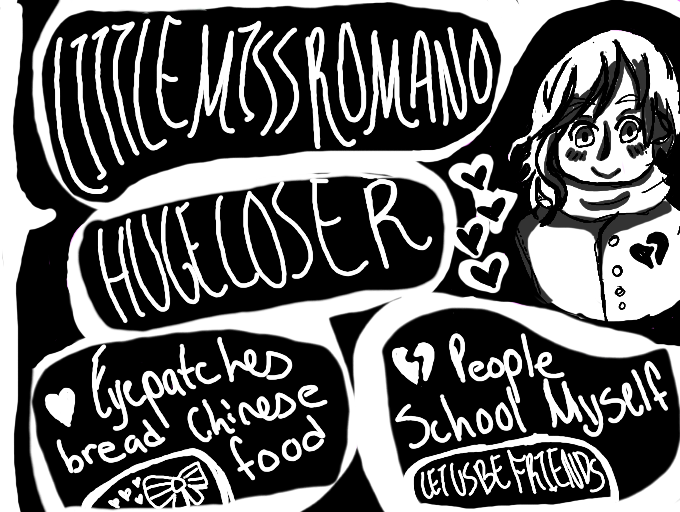 LITTLEMISSROMANO
HUGELOSER
Eyepatches
bread Chinese
food
People
School Myself
LETUSBEFRIENDS